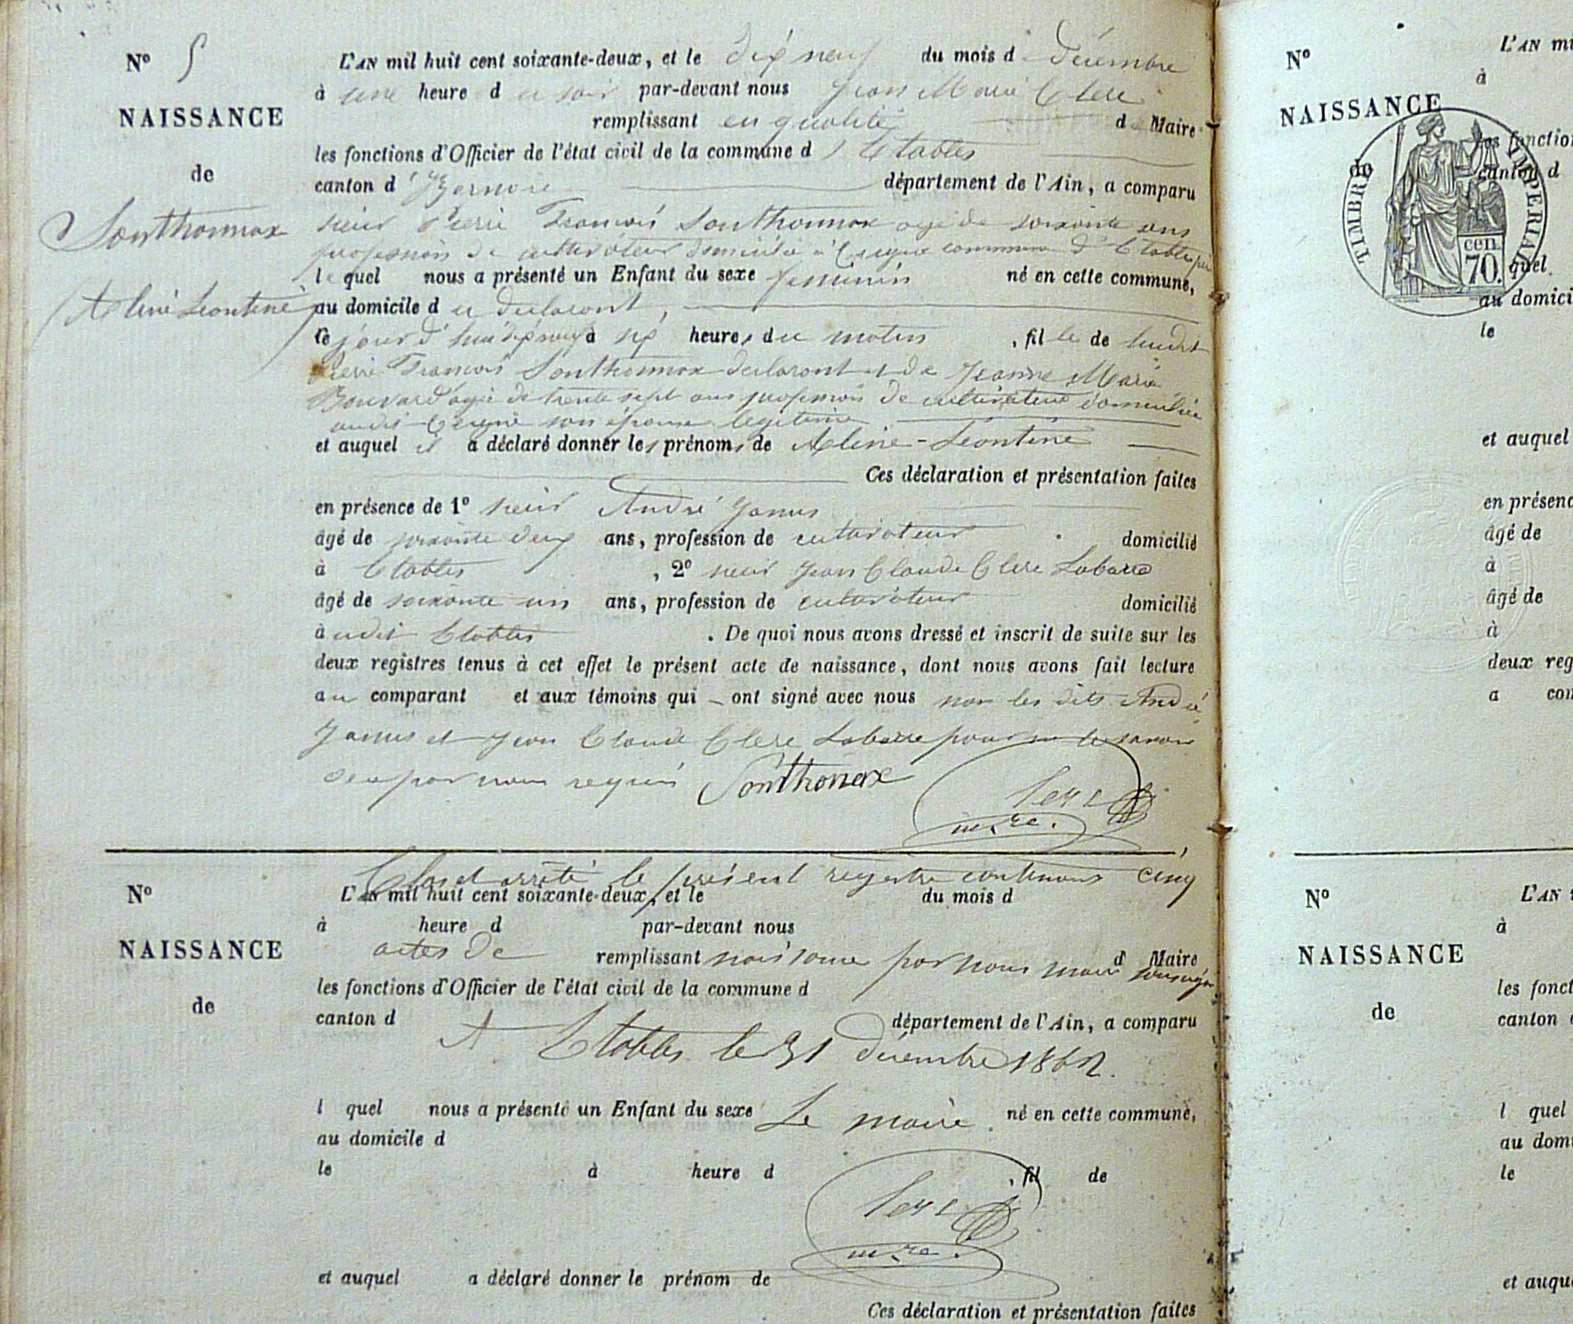 N° 5
NAISSANCE
de
Sonthonnax
Aline Léontine
L'AN mil huit cent soixante-deux, et le dix neuf du mois d Décembre
à une heure du soir par-devant nous Jean Marie Clerc
remplissant en qualité de Maire
les fonctions d'Officier de l'état civil de la commune d'Etables
canton d'Izernore département de l'Ain, a comparu
sieur Pierre François Sonthonnax agé de soixante ans
profession de cultivateur domicilié à Ceigne commune d'Etables
lequel nous a présenté un Enfant du sexe féminin né en cette commune,
au domicile du déclarant,
le jour d'hui dix neuf à six heures du matin, fille de
Pierre François Sonthonnax déclarant et de Jeanne Marie
Bouvard agée de trente sept ans profession de cultivateur domiciliée
audit Ceigne son épouse légitime
et auquel il a déclaré donner les prénoms de Aline-Léontine
Ces déclaration et présentation faites
en présence de 1° sieur André Janus
âgé de soixante deux ans, profession de cultivateur domicilié
à Etables, 2° sieur Jean Claude Clerc Labarre
âgé de soixante un ans, profession de cultivateur domicilié
audit Etables. De quoi nous avons dressé et inscrit de suite sur les
deux registres tenus à cet effet le présent acte de naissance, dont nous avons fait lecture
au comparant et aux témoins qui ont signé avec nous non les dits André
Janus et Jean Claude Clerc Labarre pour ne le savoir
de ce par nous requis Sonthonax Clerc
mre.
Clos et arrêté le présent registre contenant cinq
N° L'AN mil huit cent soixante-deux, et le du mois d
à heure d par-devant nous
NAISSANCE
actes de naissance par nous maire soussigné
remplissant d Maire
les fonctions d'Officier de l'état civil de la commune d
de
canton d département de l'Ain, a comparu
A Etables le 31 décembre 1862.
l quel nous a présenté un Enfant du sexe né en cette commune,
Le maire.
au domicile d
le à heure d, fil de
Clerc
mre.
et auquel a déclaré donner le prénom de
Ces déclaration et présentation faites
N° L'AN
à
NAISSANCE
de
les fonction
canton d
TIMBRE IMPERIAL
cen.
70.
quel
au domici
le
et auquel
en présenc
âgé de
à
âgé de
à
deux reg
a con
N° L'AN
à
NAISSANCE
les fonct
de
canton
l quel
au domi
le
et auqu